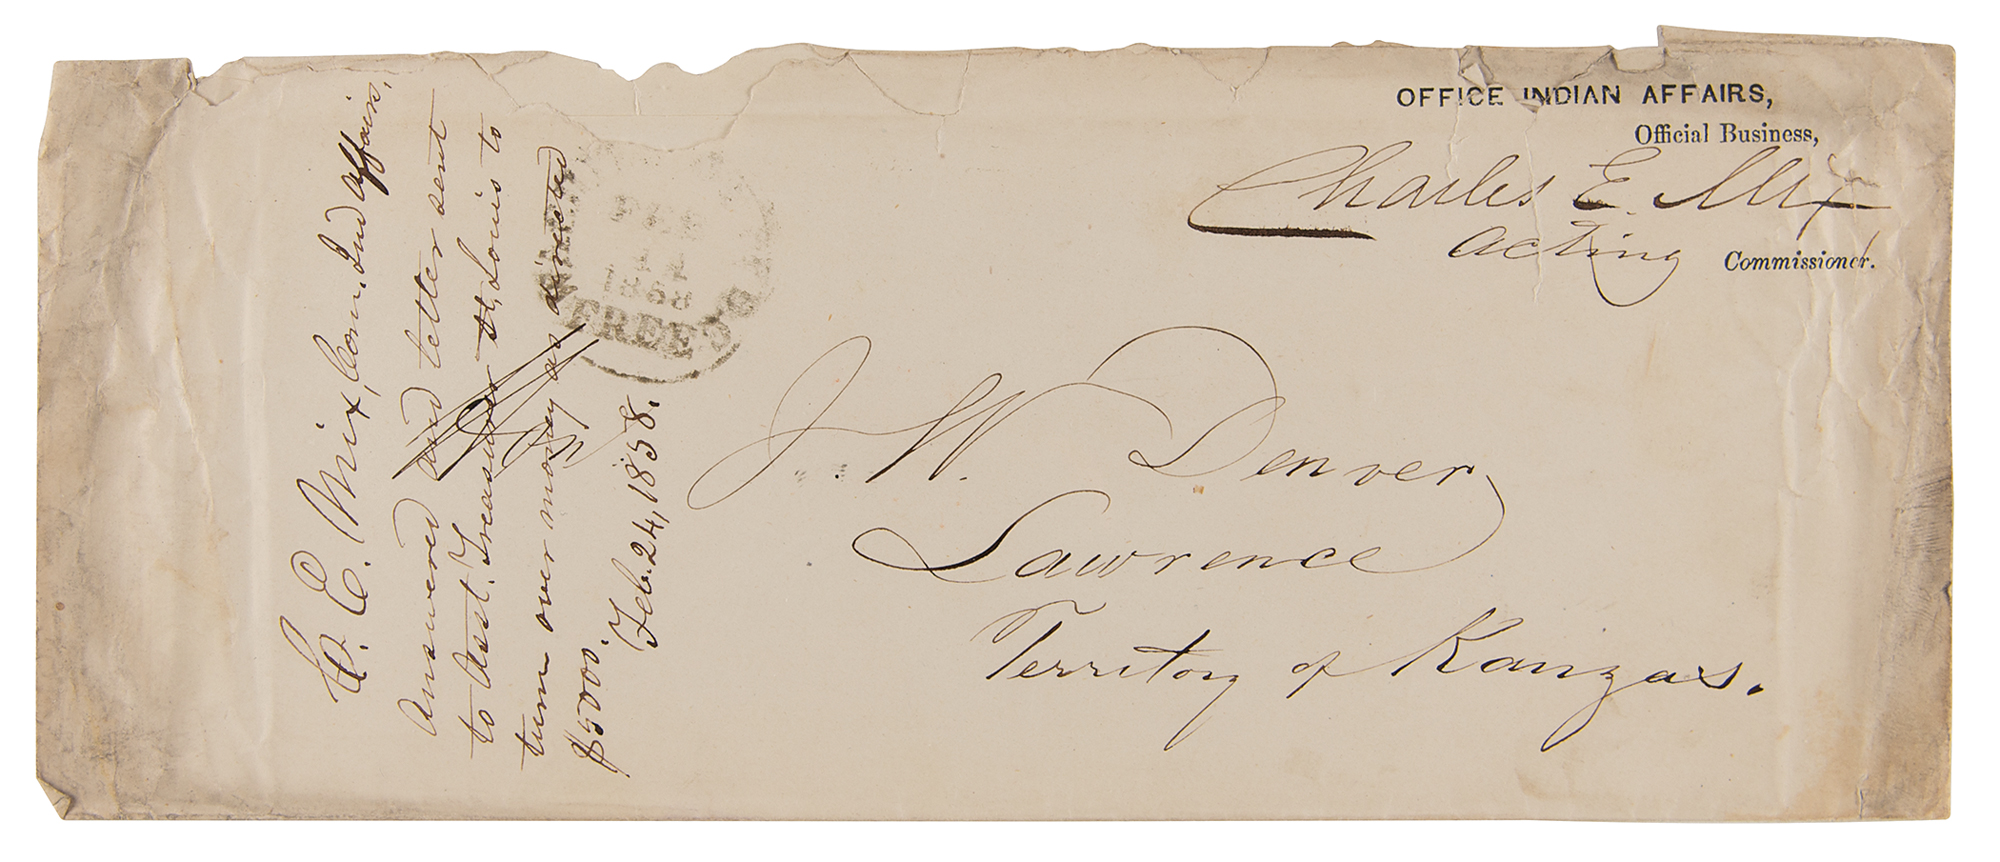 OFFICE INDIAN AFFAIRS,
Official Business,
Charles E. Mix
Acting Commissioner.
J. W. Denver
Lawrence
Territory of Kanzas.
C. E. Mix, Com. Ind affairs,
Answered and letter sent
to Asst. Treasurer St. Louis to
turn over money as directed
$5000.
Feb. 24, 1858.
1858
FREE